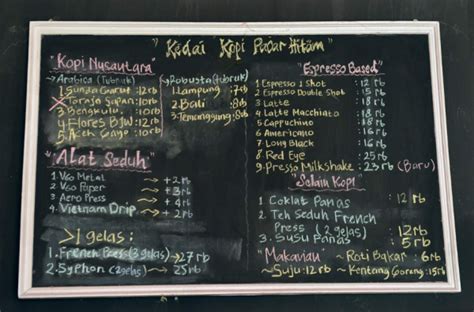 "Kedai Kopi Pacar Hitam"
"Kopi Nusantara"
~Arabica (Tubruk)
1 Sunda Garut : 12rb
2 Toraja Sapan : 10rb
3 Bengkulu : 10rb
4 Flores Bjw : 12rb
5 Aceh Gayo : 10rb
~Robusta (tubruk)
1. Lampung : 7rb
2. Bali : 8rb
3. Temanggung : 8rb
"Alat Seduh"
1 V60 Metal → +2rb
2 V60 Paper → +3rb
3 Aero Press → +4rb
4 Vietnam Drip → +2rb
>1 gelas :
1. French Press (3 gelas) → 27rb
2. Syphon (2 gelas) → 25rb
"Espresso Based"
1 Espresso 1 Shot : 12 rb
2 Espresso Double Shot : 15 rb
3 Latte : 18 rb
4 Latte Macchiato : 18 rb
5 Cappuchino : 18 rb
6 Americano : 16 rb
7 Long Black : 16 rb
8 Red Eye : 25 rb
9. Presso Milkshake : 23 rb (Baru)
"Selain Kopi"
1. Coklat Panas : 12 rb
2. Teh Seduh French
Press (2 gelas) : 12 rb
3. Susu Panas : 5 rb
"Makaviau" ~ Roti Bakar : 6 rb
~ Suju : 12rb ~ Kentang Goreng : 15rb